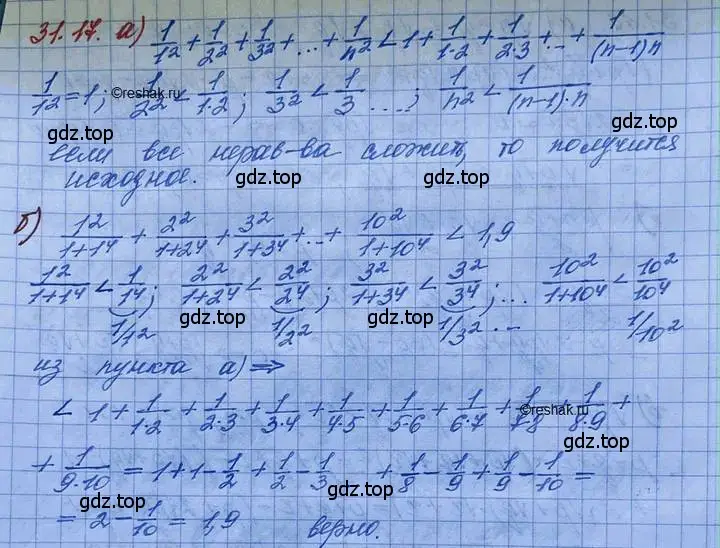 31.17. а) 1/1² + 1/2² + 1/3² + ... + 1/n² < 1 + 1/1·2 + 1/2·3 + ... + 1/(n-1)n
1/1² = 1; ©reshak.ru 1/2² < 1/1·2; 1/3² < 1/3 ....; 1/n² < 1/(n-1)·n
gdz.top gdz.top
если все нерав-ва сложить, то получится
исходное. gdz.top gdz.top
б) 1²/1+1⁴ + 2²/1+2⁴ + 3²/1+3⁴ + ... + 10²/1+10⁴ < 1,9
gdz.top
1²/1+1⁴ < 1/1⁴; 2²/1+2⁴ < 2²/2⁴; 3²/1+3⁴ < 3²/3⁴; ... 10²/1+10⁴ < 10²/10⁴
1/1² gdz.top 1/2² gdz.top 1/3² ... 1/10²
из пункта а) ⇒ gdz.top
< 1 + 1/1·2 + 1/2·3 + 1/3·4 + 1/4·5 + 1/5·6 + 1/6·7 + 1/7·8 + 1/8·9 +
©reshak.ru
gdz.top
+ 1/9·10 = 1 + 1 - 1/2 + 1/2 - 1/3 + 1/8 - 1/9 + 1/9 - 1/10 =
gdz.top gdz.top
= 2 - 1/10 = 1,9 верно.
gdz.top